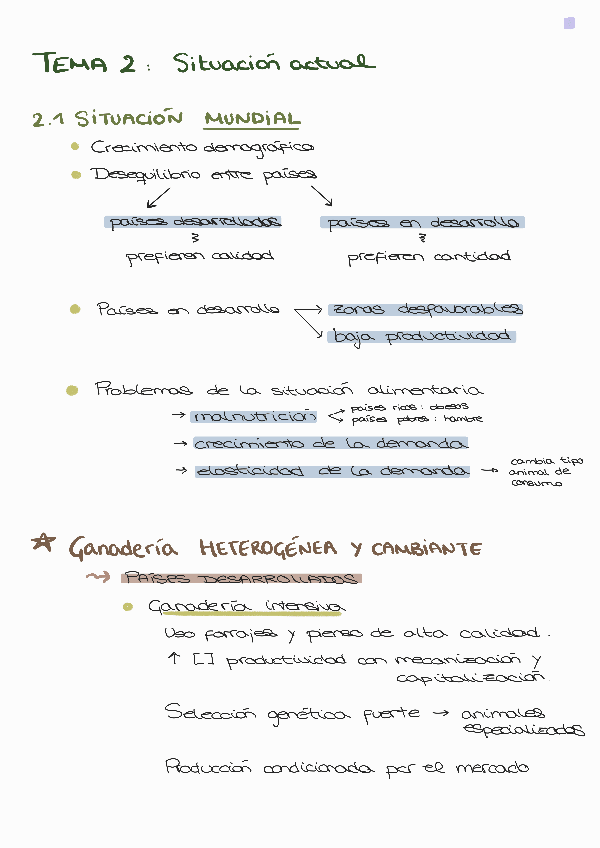 TEMA 2: Situación actual
2.1 SITUACIÓN MUNDIAL
Crecimiento demográfico
Desequilibrio entre países
países desarrollados países en desarrollo
prefieren calidad prefieren cantidad
Países en desarrollo → zonas desfavorables
baja productividad
Problemas de la situación alimentaria
→ malnutrición países ricos: obesos
países pobres: hambre
→ crecimiento de la demanda
→ elasticidad de la demanda → cambia tipo
animal de
consumo
☆ Ganadería HETEROGÉNEA Y CAMBIANTE
→ PAÍSES DESARROLLADOS
Ganadería intensiva
Uso forrajes y pienso de alta calidad.
↑ [] productividad con mecanización y
capitalización
Selección genética fuerte → animales
especializados
Producción condicionada por el mercado